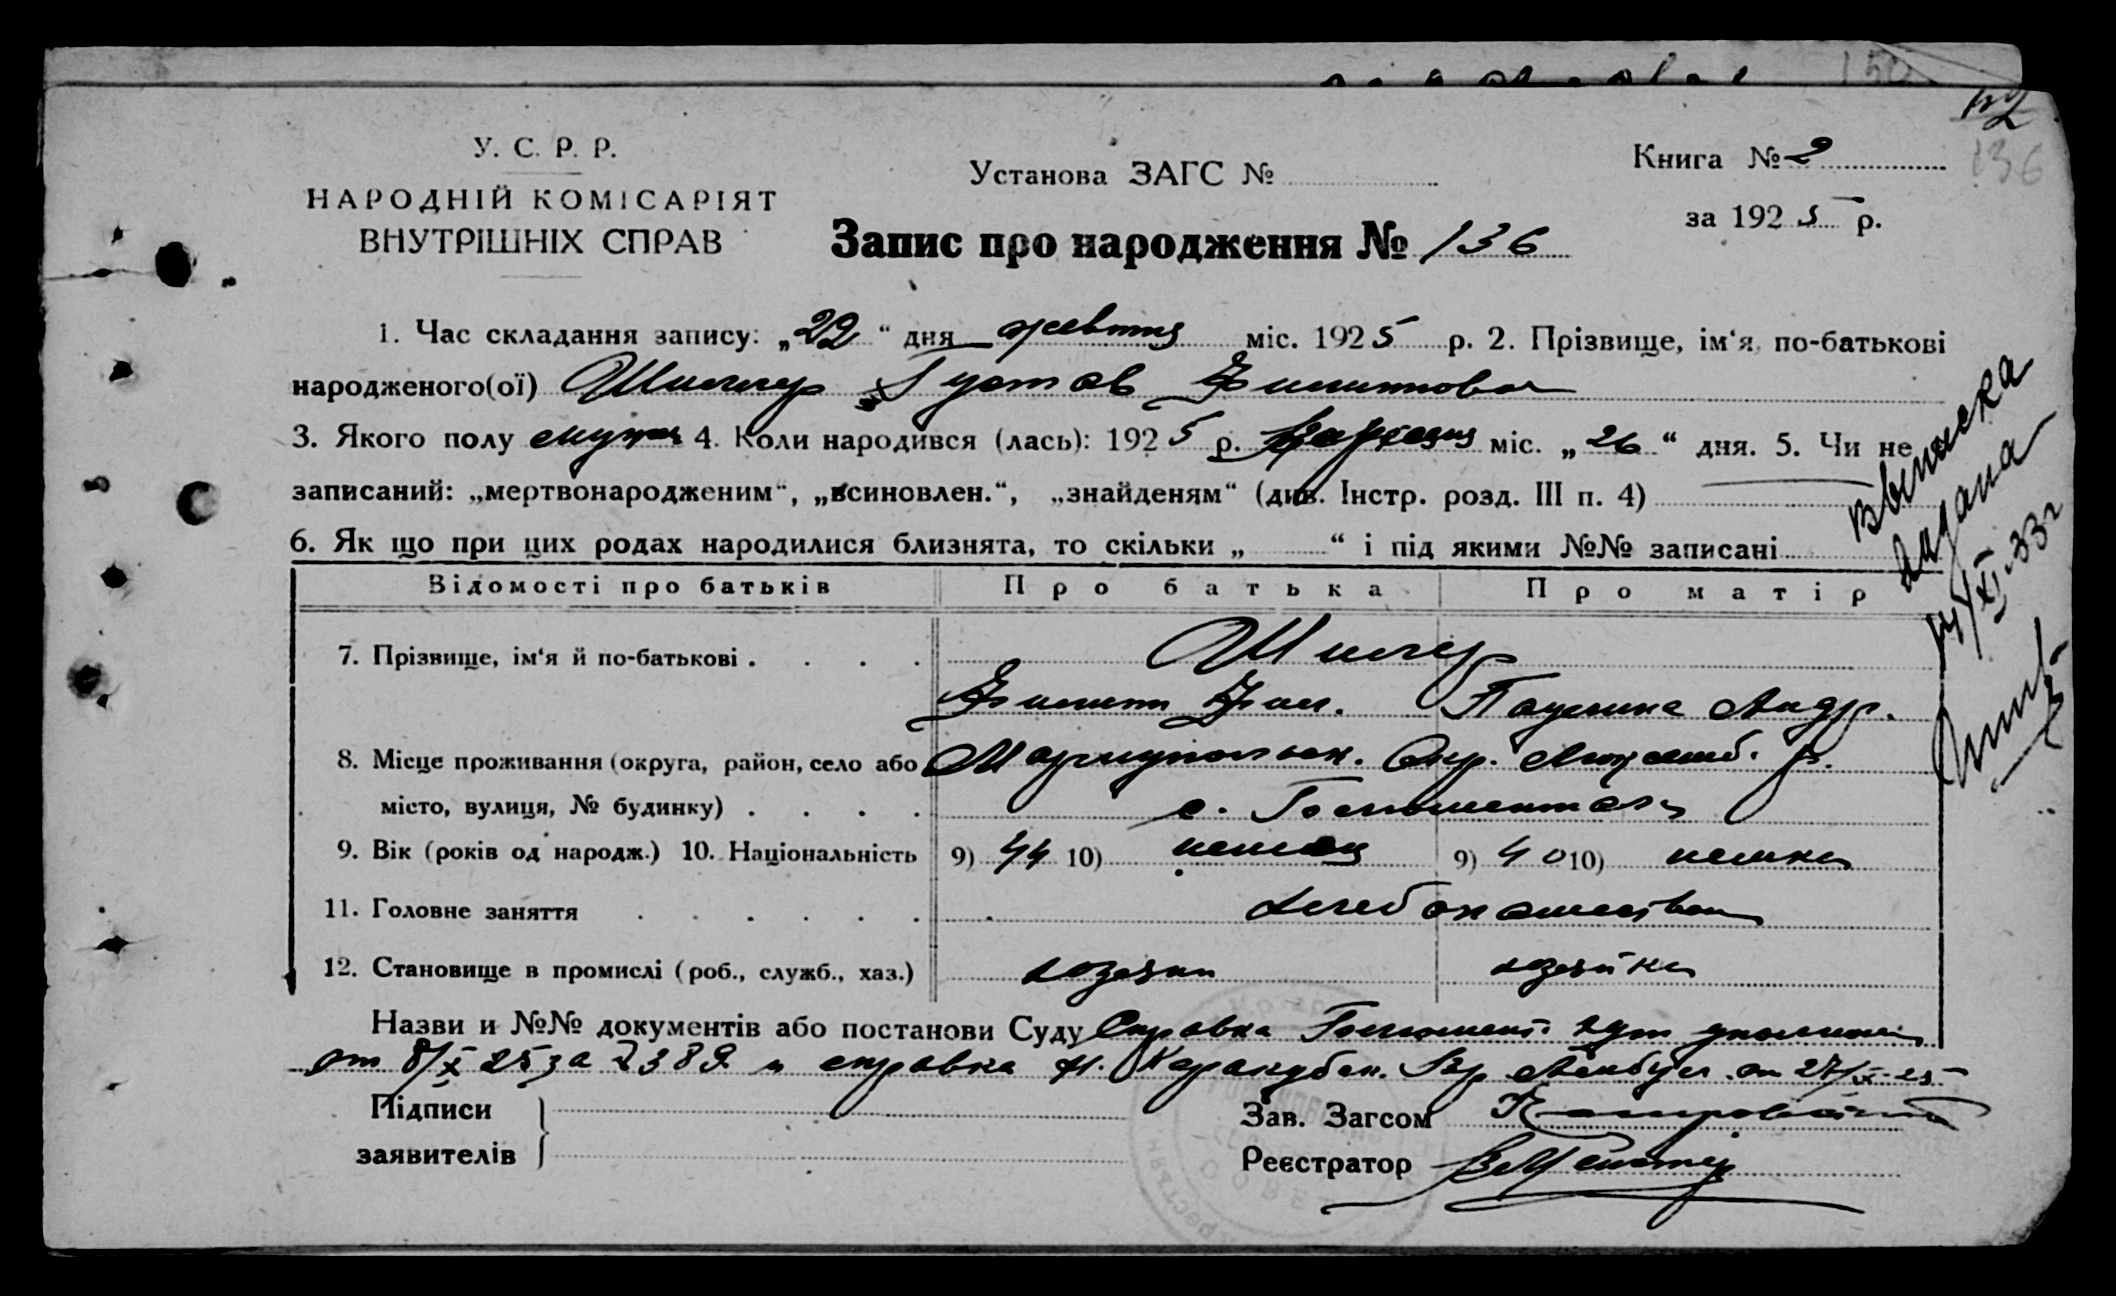 150
132
136
У. С. Р. Р.
НАРОДНІЙ КОМІСАРІЯТ
ВНУТРІШНІХ СПРАВ
Установа ЗАГС №
Книга № 2
за 1925 р.
Запис про народження № 136
1. Час складання запису: „22“ дня жовтня міс. 1925 р. 2. Прізвище, ім‘я, по-батькові
народженого(ої) Шиллер Густав Филиппович
3. Якого полу мужск 4. Коли народився (лась): 1925 р. міс. „26“ дня. 5. Чи не
записаний: „мертвонародженим“, „всиновлен.“, „знайденям“ (див. Інстр. розд. III п. 4)
6. Як що при цих родах народилися близнята, то скільки „ “ і під якими №№ записані
Відомості про батьків Про батька Про матір
7. Прізвище, ім‘я й по-батькові . . . . Шиллер
Филипп Фил. Паулина Андр.
8. Місце проживання (округа, район, село або Мариупольск. Окр. Люксемб. р.
місто, вулиця, № будинку) . . . . с.
9. Вік (років од народж.) 10. Національність 9) 44 10) немец 9) 40 10) немка
11. Головне заняття . . . . . . хлебопашество
12. Становище в промислі (роб., служб., хаз.) хозяин хозяйка
Назви и №№ документів або постанови Суду Справка
от 8/X 25 за 2389 и справка от 27/IX-25
Підписи
заявителів
Зав. Загсом
Реєстратор
выписка
дана
14/XI-33г